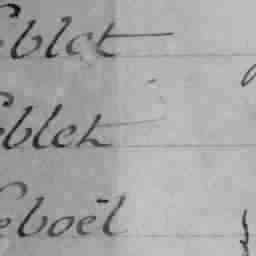 eblet
eblet
eboël